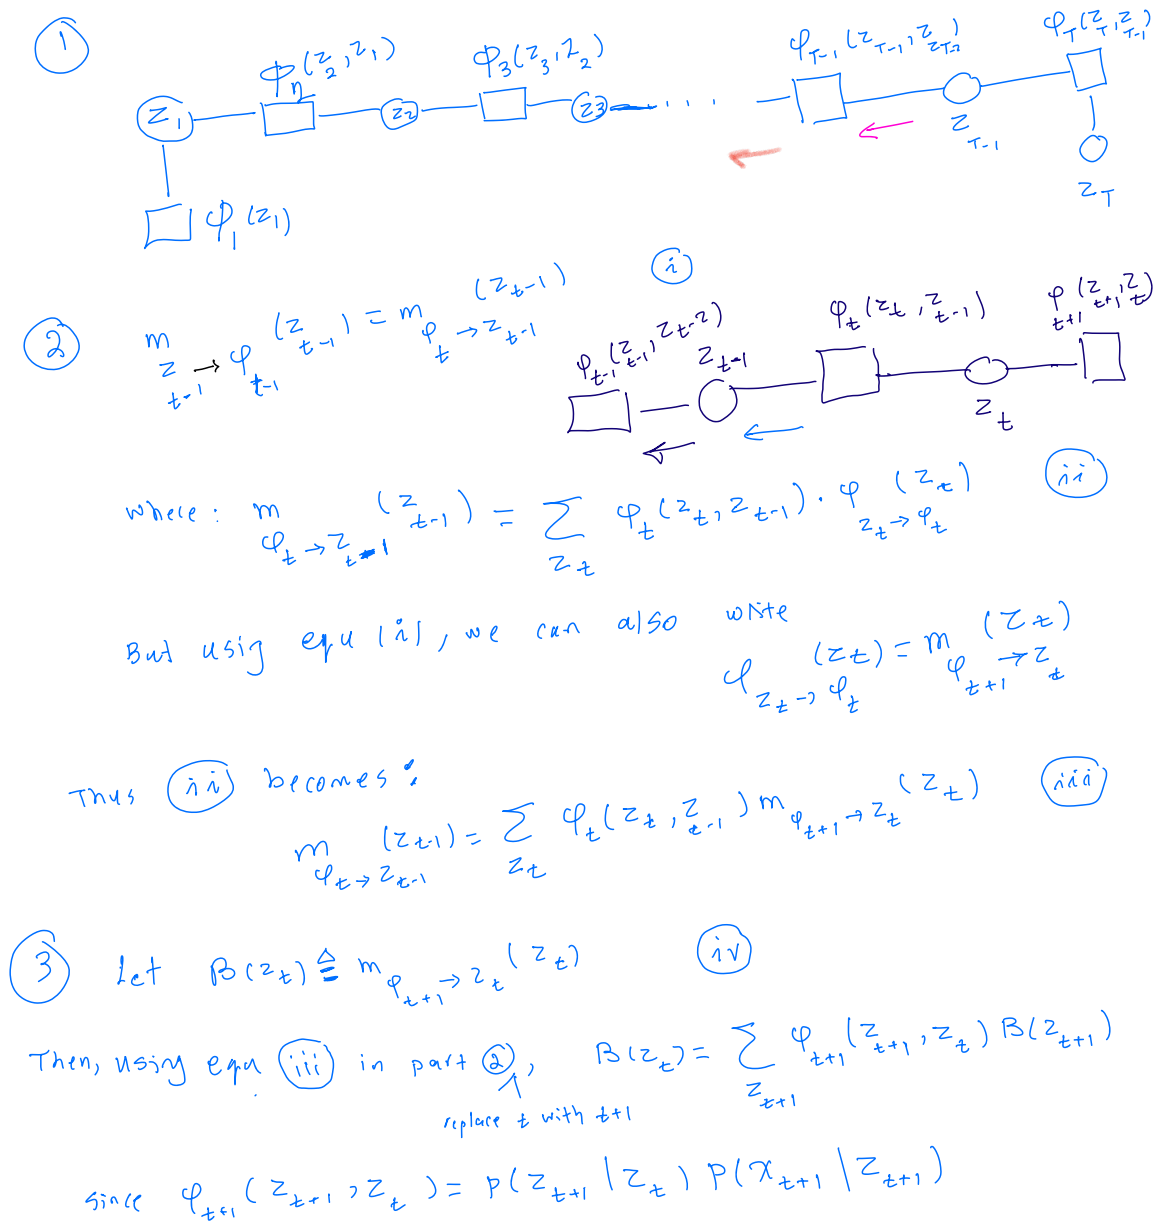 ①
φ₂(z₂, z₁) φ₃(z₃, z₂) φ_{T-1}(z_{T-1}, z_{T-2}) φ_T(z_T, z_{T-1})
z₁ z₂ z₃ ... z_{T-1}
z_T
φ₁(z₁)
② m_{z_{t-1} → φ_{t-1}}(z_{t-1}) = m_{φ_t → z_{t-1}}(z_{t-1}) (i)
φ_{t-1}(z_{t-1}, z_{t-2}) z_{t-1} φ_t(z_t, z_{t-1}) z_t φ_{t+1}(z_{t+1}, z_t)
where: m_{φ_t → z_{t-1}}(z_{t-1}) = Σ_{z_t} φ_t(z_t, z_{t-1}) · φ_{z_t → φ_t}(z_t) (ii)
But using equ (i), we can also write
φ_{z_t → φ_t}(z_t) = m_{φ_{t+1} → z_t}(z_t)
Thus (ii) becomes:
m_{φ_t → z_{t-1}}(z_{t-1}) = Σ_{z_t} φ_t(z_t, z_{t-1}) m_{φ_{t+1} → z_t}(z_t) (iii)
③ Let B(z_t) ≜ m_{φ_{t+1} → z_t}(z_t) (iv)
Then, using equ (iii) in part ②, B(z_t) = Σ_{z_{t+1}} φ_{t+1}(z_{t+1}, z_t) B(z_{t+1})
replace t with t+1
since φ_{t+1}(z_{t+1}, z_t) = p(z_{t+1} | z_t) p(x_{t+1} | z_{t+1})